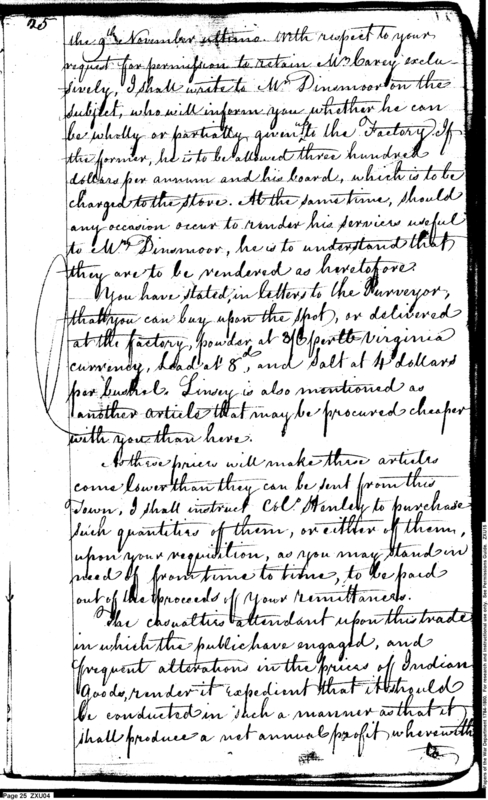 25
the 9th November ultimo. With respect to your
request for permission to retain Mr. Carey exclu-
sively, I shall write to Mr. Dinsmoor on the
subject, who will inform you whether he can
be wholly or partially given up to the Factory. If
the former, he is to be allowed three hundred
dollars per annum and his board, which is to be
charged to the store. At the same time, should
any occasion occur to render his services useful
to Mr. Dinsmoor, he is to understand that
they are to be rendered as heretofore.
You have stated in letters to the Purveyor,
that you can buy upon the spot, or delivered
at the factory, powder at 3/6 per lb Virginia
currency, Lead at 8d, and Salt at 4 dollars
per bushel. Linsey is also mentioned as
another article that may be procured cheaper
with you than here.
As these prices will make these articles
come lower than they can be sent from this
Town, I shall instruct Col. Henley to purchase
such quantities of them, or either of them,
upon your requisition, as you may stand in
need of from time to time, to be paid
out of the proceeds of your remittances.
The casualties attendant upon this trade
in which the public have engaged, and
frequent alterations in the prices of Indian
Goods, render it expedient that it should
be conducted in such a manner as that it
shall produce a net annual profit wherewith
to
Page 25 ZXU04